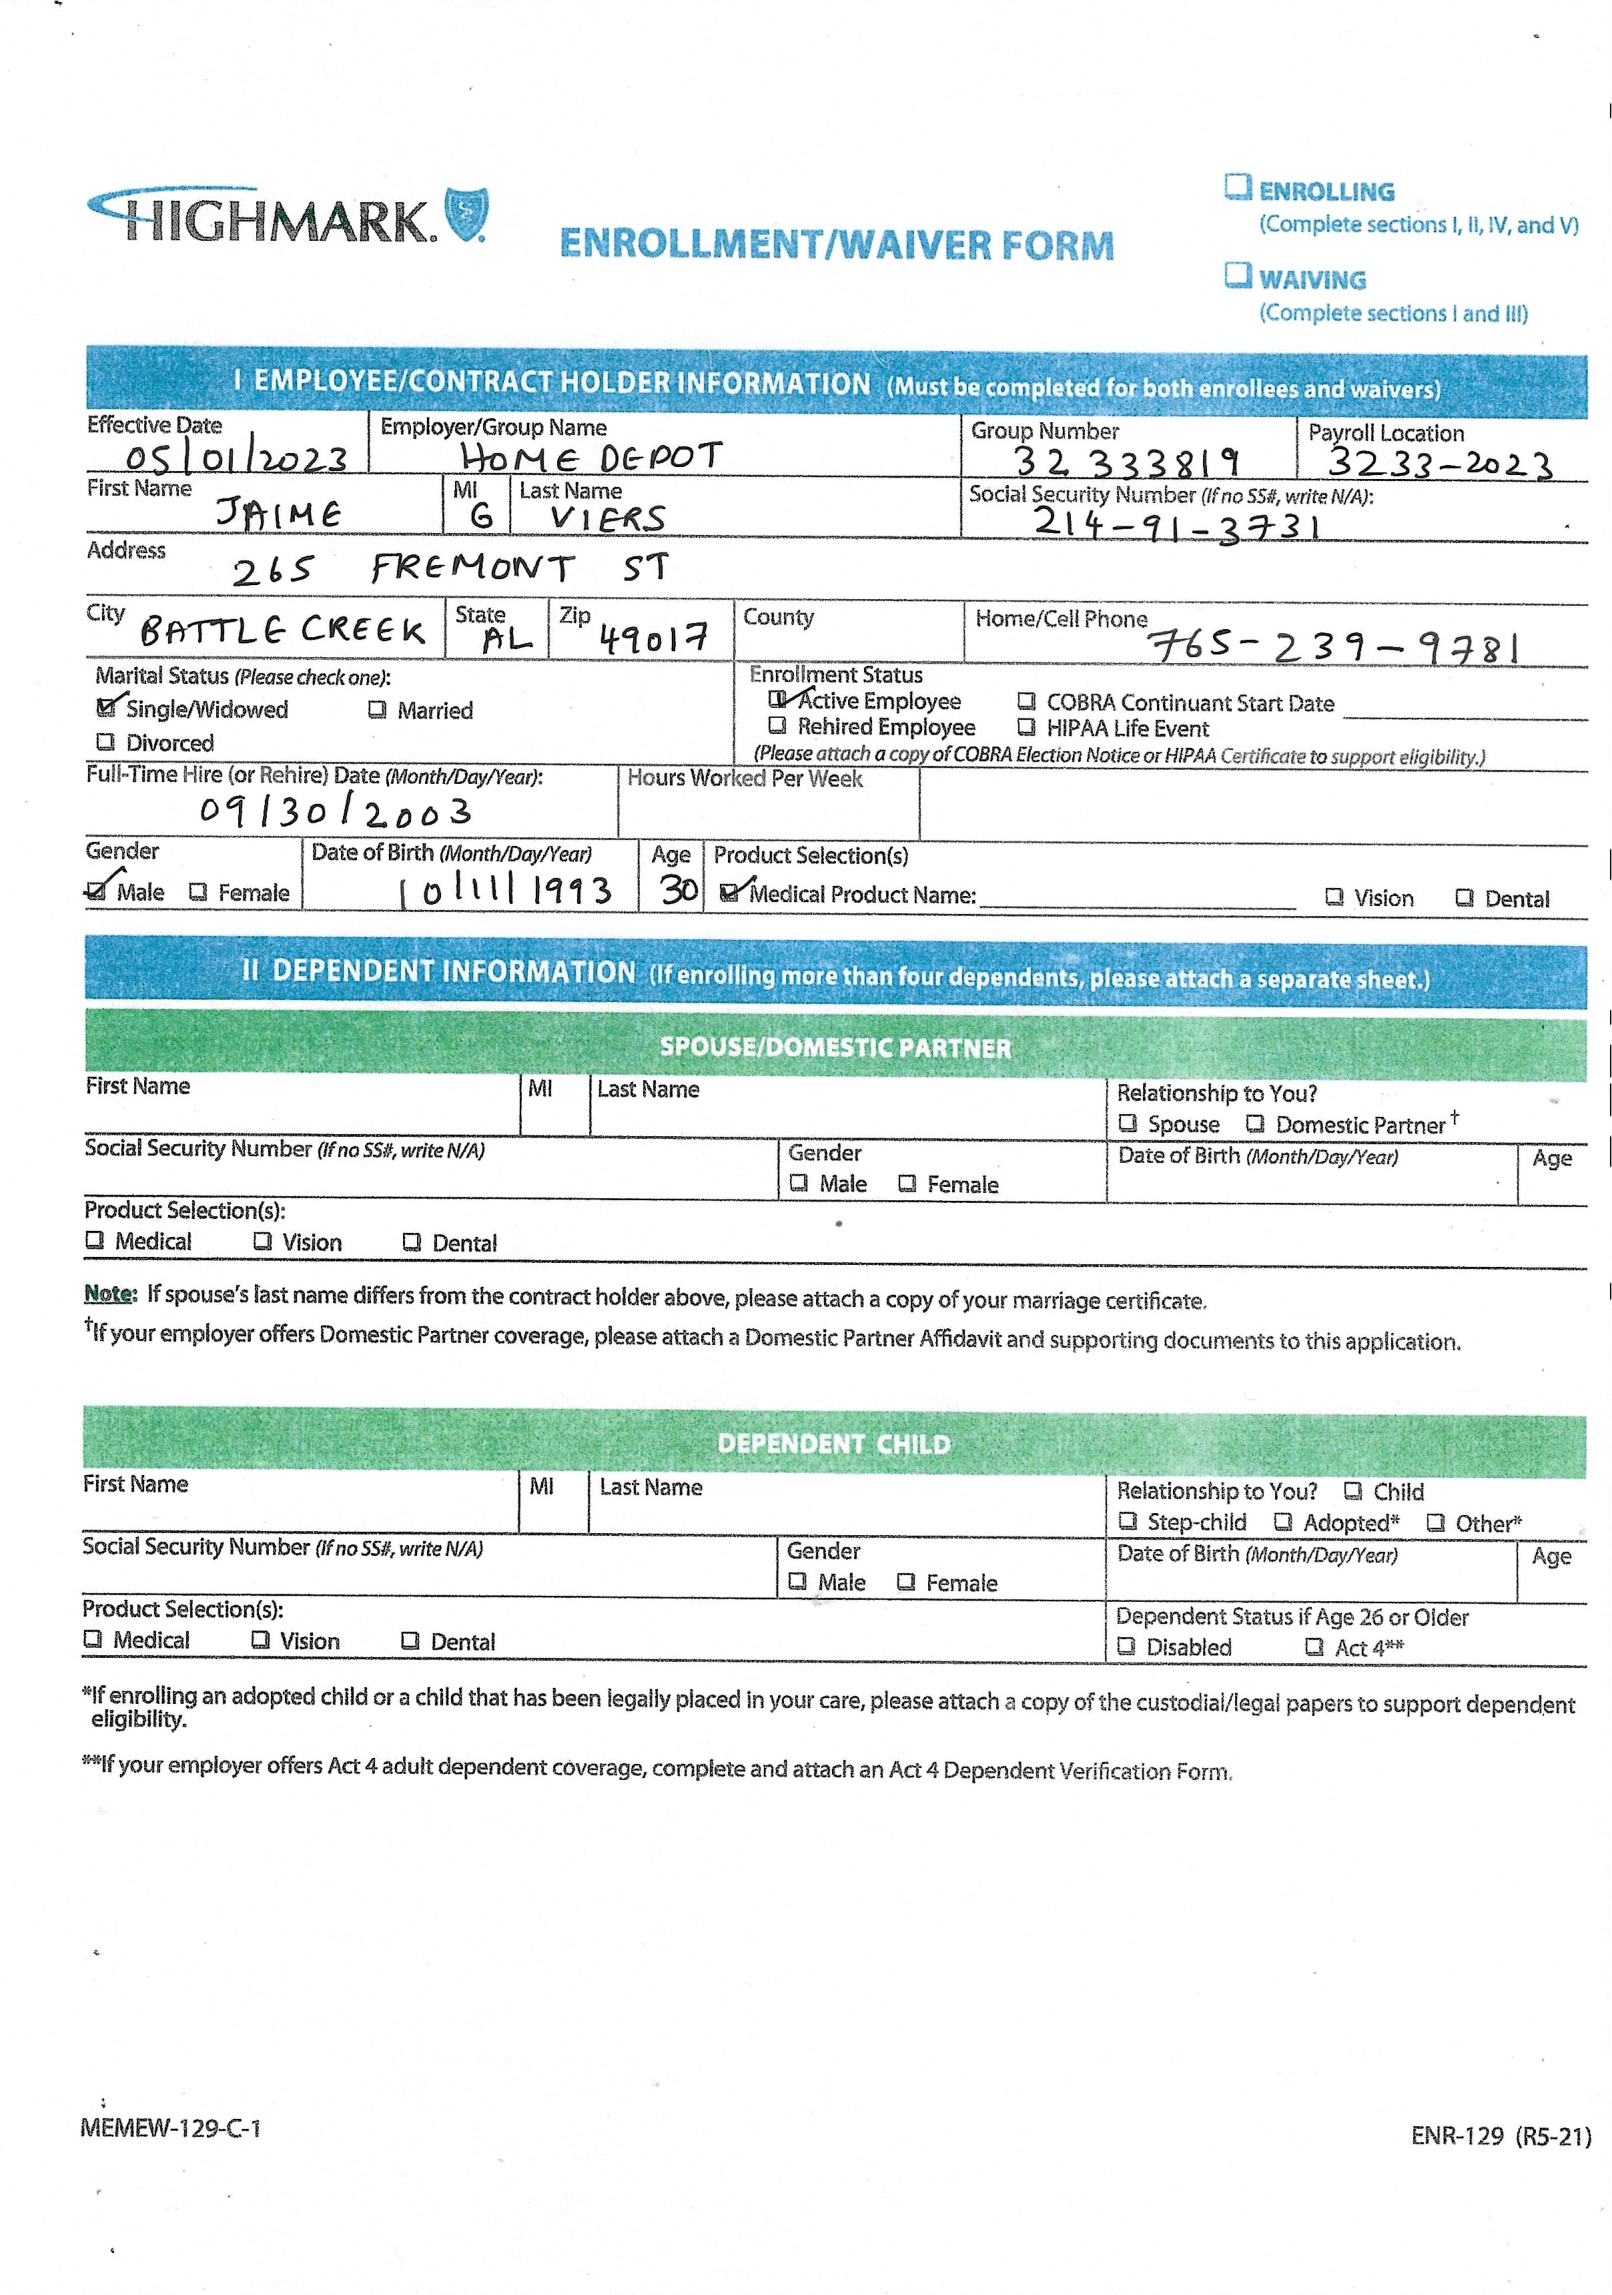 HIGHMARK.
ENROLLMENT/WAIVER FORM
☐ ENROLLING
(Complete sections I, II, IV, and V)
☐ WAIVING
(Complete sections I and III)
I EMPLOYEE/CONTRACT HOLDER INFORMATION (Must be completed for both enrollees and waivers)
Effective Date Employer/Group Name Group Number Payroll Location
05/01/2023 HOME DEPOT 32 333819 3233-2023
First Name MI Last Name Social Security Number (If no SS#, write N/A):
JAIME G VIERS 214-91-3731
Address
265 FREMONT ST
City State Zip County Home/Cell Phone
BATTLE CREEK AL 49017 765-239-9781
Marital Status (Please check one): Enrollment Status
☑ Single/Widowed ☐ Married ☑ Active Employee ☐ COBRA Continuant Start Date
☐ Divorced ☐ Rehired Employee ☐ HIPAA Life Event
(Please attach a copy of COBRA Election Notice or HIPAA Certificate to support eligibility.)
Full-Time Hire (or Rehire) Date (Month/Day/Year): Hours Worked Per Week
09/30/2003
Gender Date of Birth (Month/Day/Year) Age Product Selection(s)
☑ Male ☐ Female 10/11/1993 30 ☑ Medical Product Name: ☐ Vision ☐ Dental
II DEPENDENT INFORMATION (If enrolling more than four dependents, please attach a separate sheet.)
SPOUSE/DOMESTIC PARTNER
First Name MI Last Name Relationship to You?
☐ Spouse ☐ Domestic Partner†
Social Security Number (If no SS#, write N/A) Gender Date of Birth (Month/Day/Year) Age
☐ Male ☐ Female
Product Selection(s):
☐ Medical ☐ Vision ☐ Dental
Note: If spouse's last name differs from the contract holder above, please attach a copy of your marriage certificate.
†If your employer offers Domestic Partner coverage, please attach a Domestic Partner Affidavit and supporting documents to this application.
DEPENDENT CHILD
First Name MI Last Name Relationship to You? ☐ Child
☐ Step-child ☐ Adopted* ☐ Other*
Social Security Number (If no SS#, write N/A) Gender Date of Birth (Month/Day/Year) Age
☐ Male ☐ Female
Product Selection(s): Dependent Status if Age 26 or Older
☐ Medical ☐ Vision ☐ Dental ☐ Disabled ☐ Act 4**
*If enrolling an adopted child or a child that has been legally placed in your care, please attach a copy of the custodial/legal papers to support dependent
eligibility.
**If your employer offers Act 4 adult dependent coverage, complete and attach an Act 4 Dependent Verification Form.
MEMEW-129-C-1 ENR-129 (R5-21)